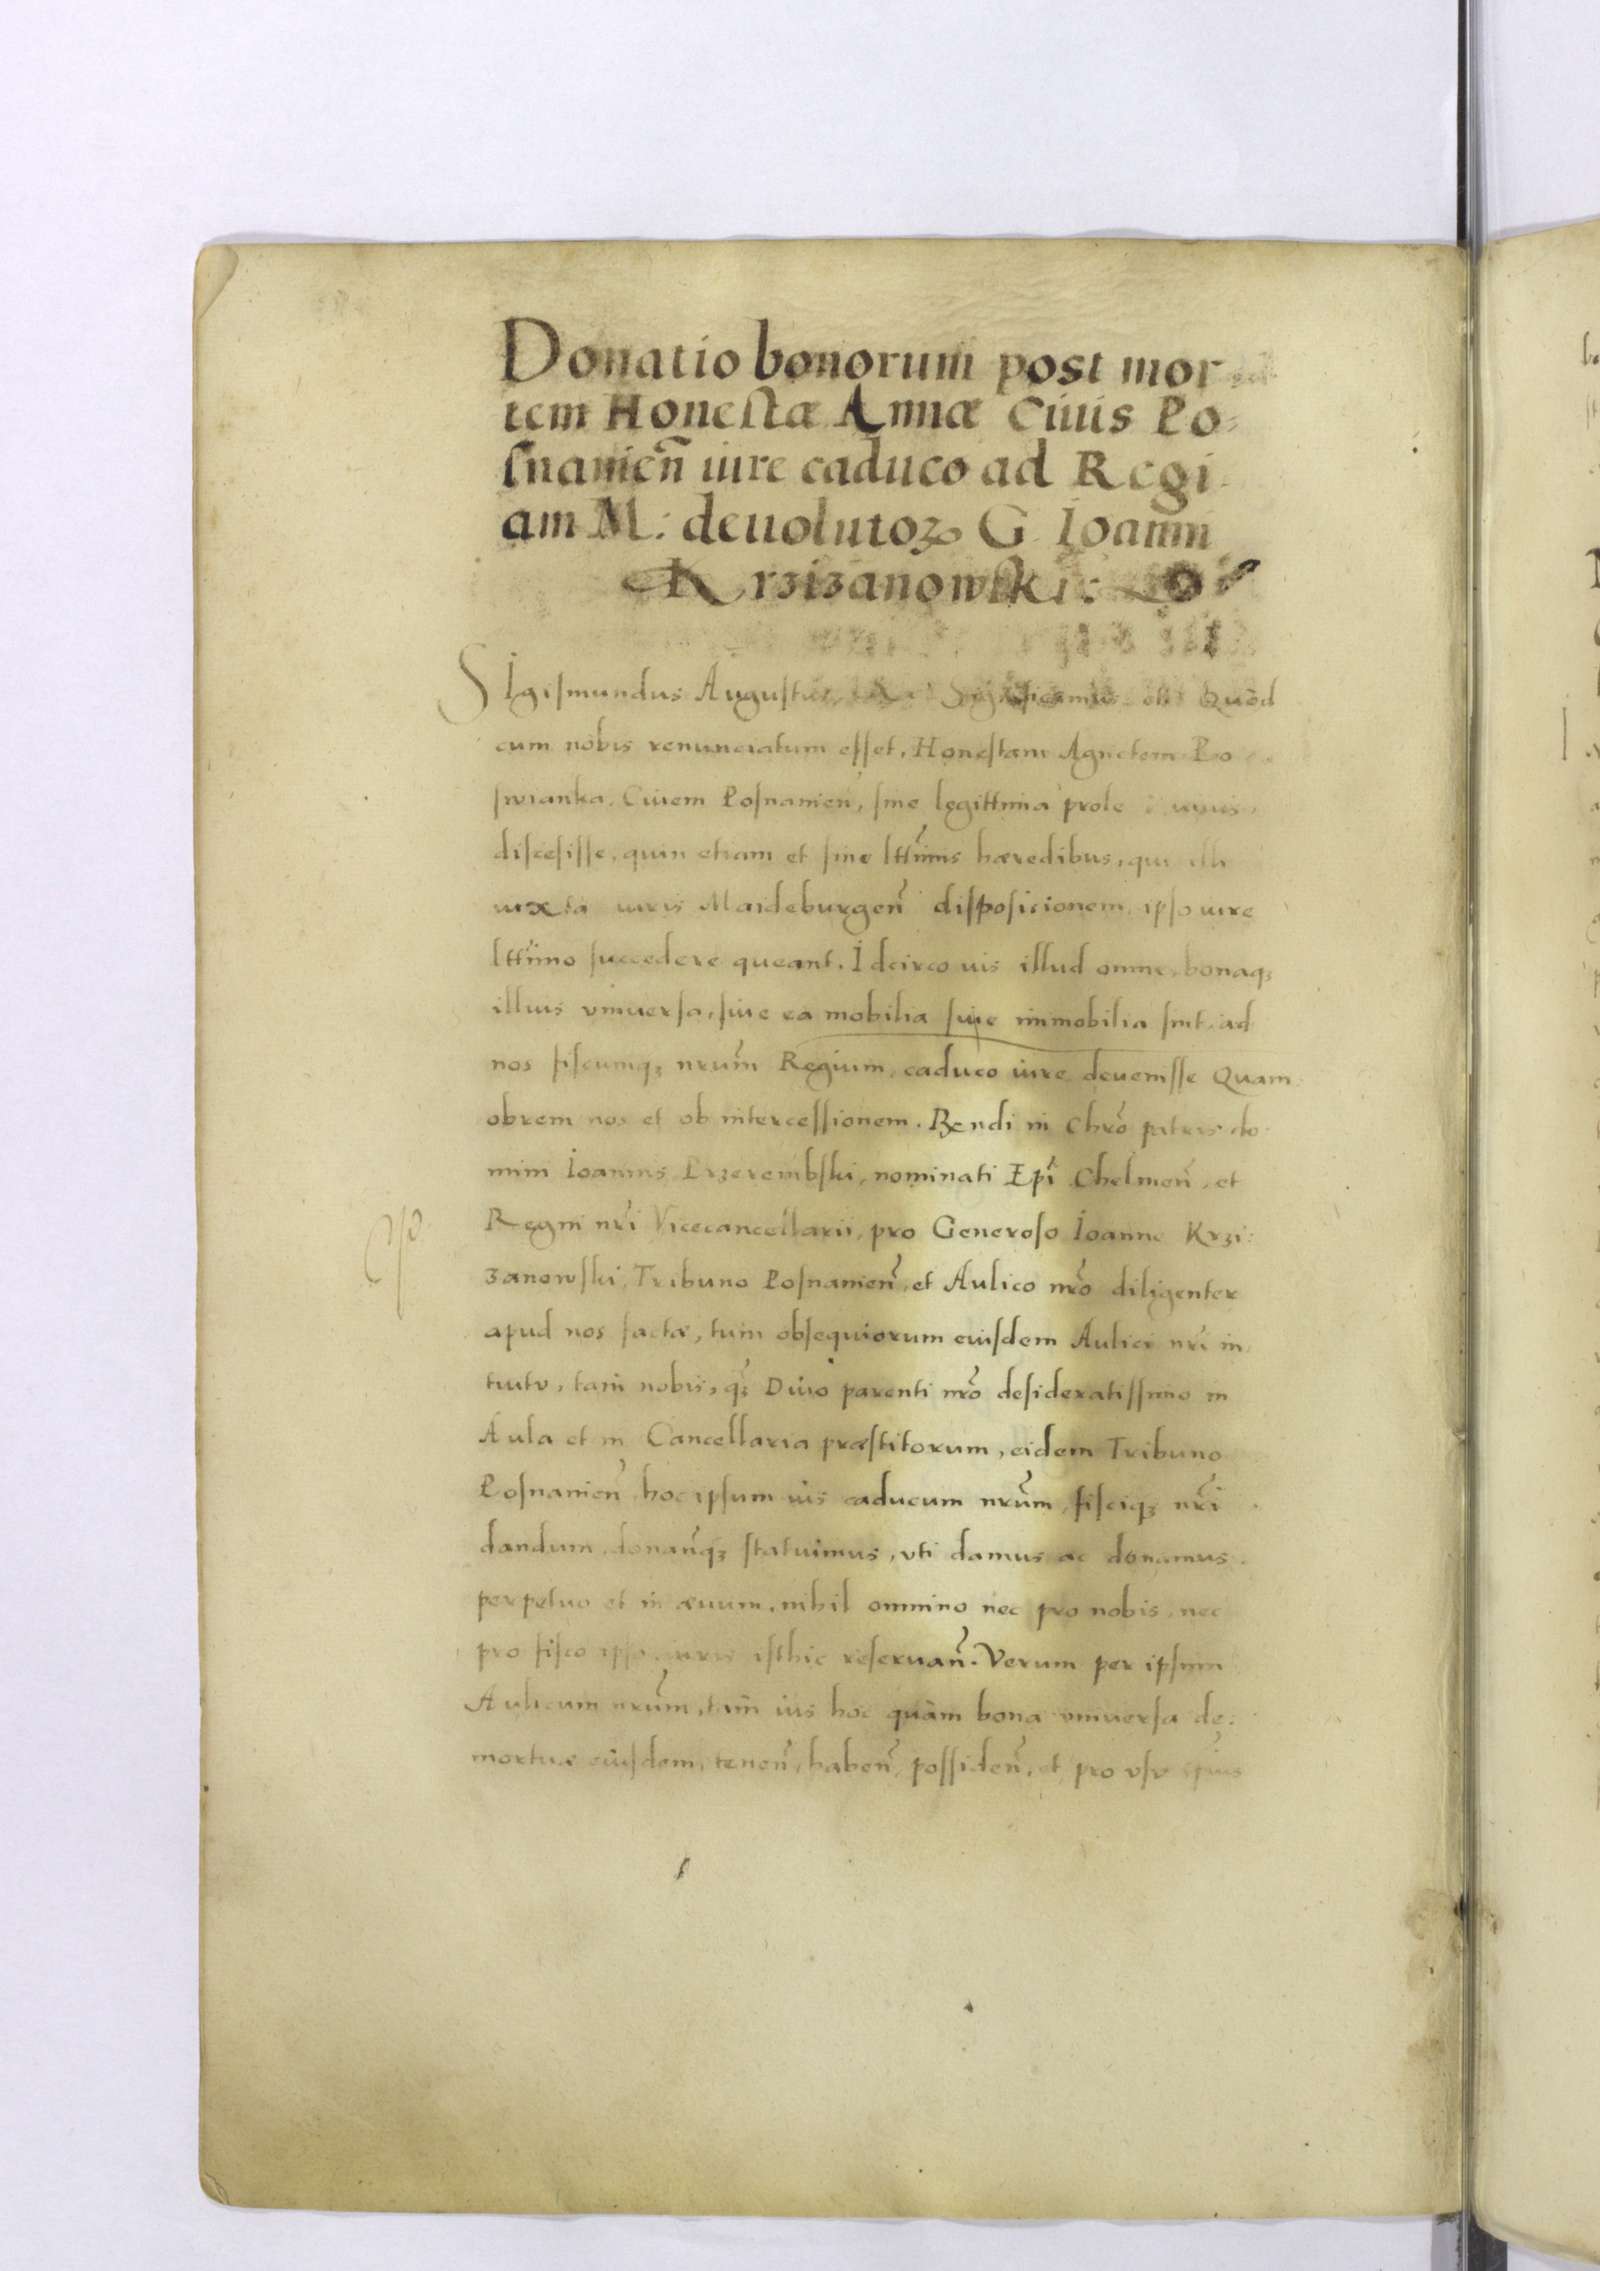 Donatio bonorum post mor
tem Honestæ Annæ Ciuis Po-
snanień iure caduco ad Regi
am M: deuolutoꝝ G Ioanni
Krzizanowski:
Sigismundus Augustus Significamus Quod
cum nobis renunciatum esset, Honestam Agnetem Po
swianka, Ciuem Posnanień, sine legittima prole
discesisse, quin etiam et sine lttimis hæredibus, qui illi
iuxta iuris Maideburgeń dispositionem, ipso iure
lttimo succedere queant. Idcirco ius illud omne, bonaqꝫ
illius vniuersa, siue ea mobilia siue immobilia sint, ad
nos fiscumqꝫ nrum̃ Regium, caduco iure deuenisse Quam
obrem nos et ob intercessionem. Rẹndi in Chrõ patris do
mini Ioannis Przerembski, nominati Epĩ Chelmeń, et
Regni nrĩ Vicecancellarii, pro Generoso Ioanne Krzi:
zanowski, Tribuno Posnanień, et Aulico nrõ diligenter
apud nos factæ, tum obsequiorum eiusdem Aulici nrĩ in
tuitu, tam nobis, qꝫ Diuo parenti nrõ desideratissimo in
Aula et in Cancellaria præstitorum, eidem Tribuno
Posnanień hoc ipsum ius caducum nrum̃, fisciqꝫ nrĩ
dandum, donanđqꝫ statuimus, vti damus ac donamus.
perpetuo et in æuum, nihil omnino nec pro nobis, nec
pro fisco ipso iuris isthic reseruań. Verum per ipsum
Aulicum nrum̃, tam ius hoc quàm bona vniuersa de:
mortuæ eiusdem, teneń, habeń, possideń, et pro vsu ipius